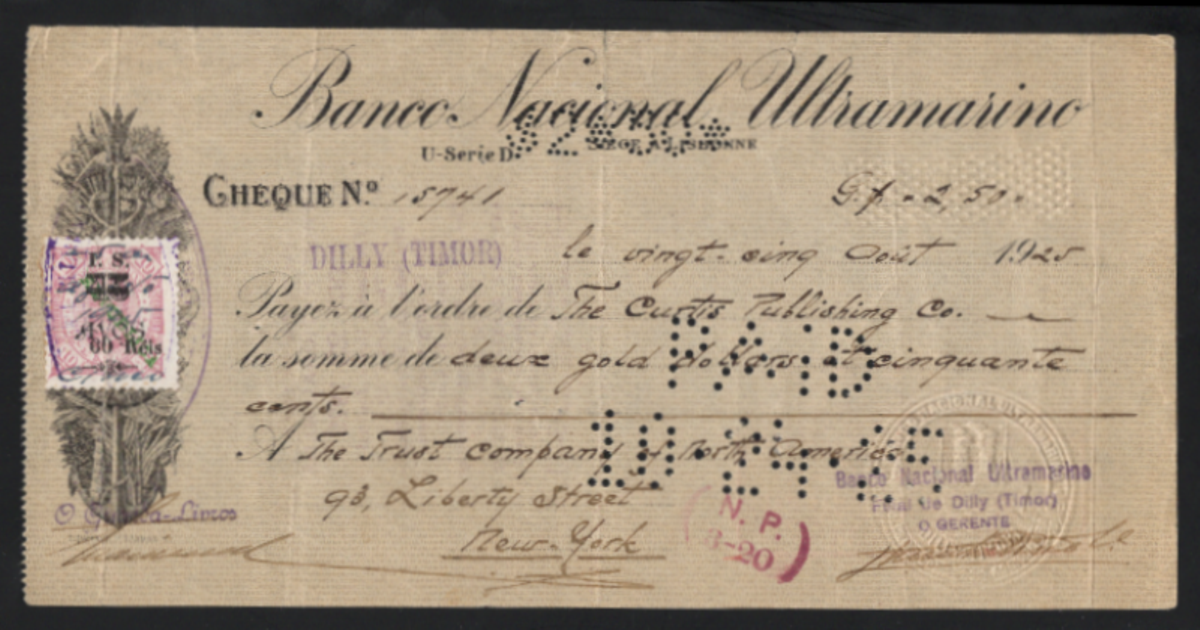 Banco Nacional Ultramarino
U-Serie D. SIÈGE À LISBONNE
CHEQUE N.º 15741 G.$ - 2,50.
DILLY (TIMOR) le vingt-cinq Août 1925
Payez à l'ordre de The Curtis Publishing Co.
la somme de deux gold dollars et cinquante
cents.
A The Trust company of North America
93, Liberty Street
New-York
P. S.
AVOS
60 Réis
PAID
10 24 25
Banco Nacional Ultramarino
Filial de Dilly (Timor)
O GERENTE
O Guarda-Livros
N. P.
3-20